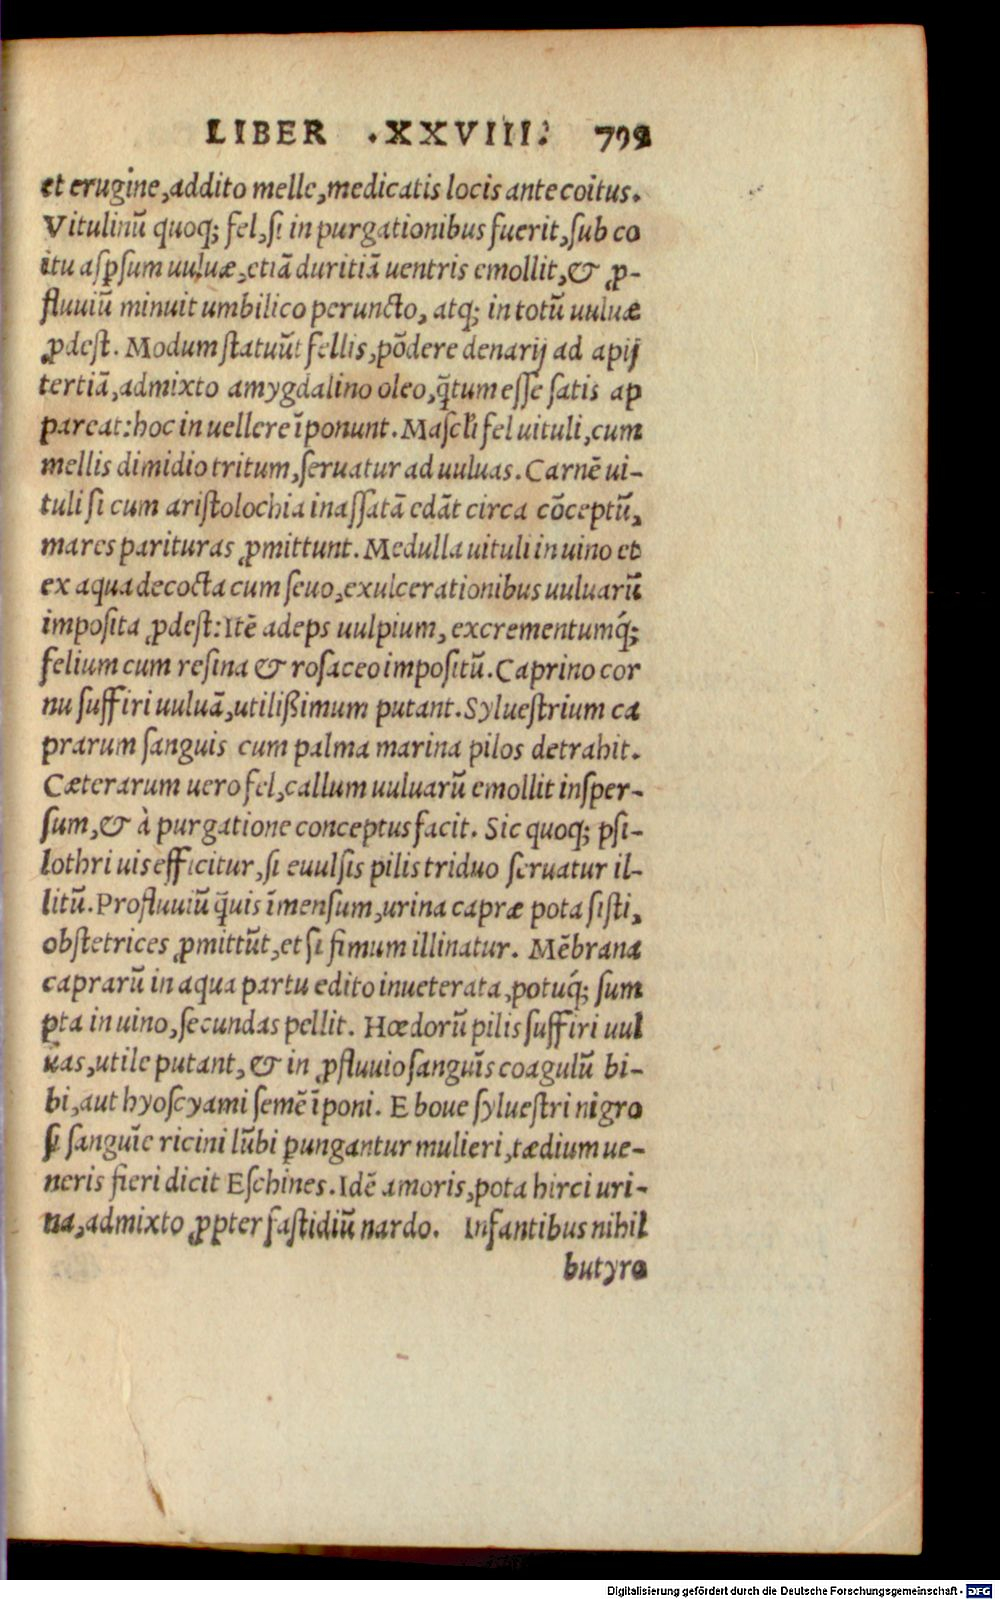 LIBER .XXVIII. 792
et erugine,addito melle,medicatis locis ante coitus.
Vitulinū quoq; fel,si in purgationibus fuerit,sub co
itu asꝑsum uuluæ,etiā duritiā uentris emollit,& ꝓ-
fluuiū minuit umbilico peruncto, atq; in totū uuluæ
ꝓdest. Modum statuūt fellis,pōdere denarij ad apij
tertiā,admixto amygdalino oleo,q̄tum esse satis ap
pareat:hoc in uellere īponunt. Mascli fel uituli,cum
mellis dimidio tritum,seruatur ad uuluas. Carnē ui-
tuli si cum aristolochia inassatā edāt circa cōceptū,
mares parituras ꝓmittunt. Medulla uituli in uino et
ex aqua decocta cum seuo,exulcerationibus uuluarū
imposita ꝓdest:Itē adeps uulpium, excrementumq́;
felium cum resina & rosaceo impositū. Caprino cor
nu suffiri uuluā,utilißimum putant. Syluestrium ca
prarum sanguis cum palma marina pilos detrahit.
Cæterarum uero fel,callum uuluarū emollit insper-
sum,& à purgatione conceptus facit. Sic quoq; psi-
lothri uis efficitur,si euulsis pilis triduo seruatur il-
litū. Profluuiū q̄uis īmensum,urina capræ pota sisti,
obstetrices ꝓmittūt,et si fimum illinatur. Mēbrana
caprarū in aqua partu edito inueterata,potuq́; sum
pta in uino,secundas pellit. Hœdorū pilis suffiri uul
uas,utile putant,& in ꝓfluuio sanguīs coagulū bi-
bi,aut hyoscyami semē īponi. E boue syluestri nigro
si sanguīe ricini lūbi ꝑungantur mulieri,tædium ue-
neris fieri dicit Eschines. Idē amoris,pota hirci uri-
na,admixto ꝓpter fastidiū nardo. Infantibus nihil
butyro
Digitalisierung gefördert durch die Deutsche Forschungsgemeinschaft - DFG